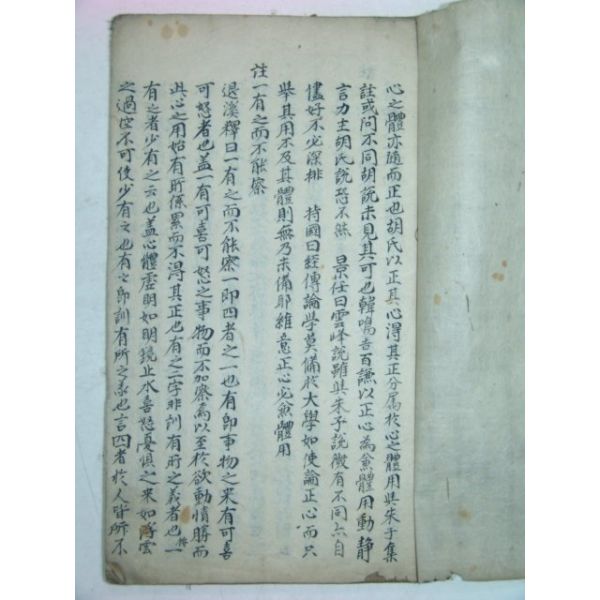 心之體亦隨而正也胡氏以正其心得其正分屬於心之體用與朱子集
註或問不同胡說未見其可也韓鳴吉百謙以正心為兼體用動靜
言力主胡氏說恐不然 景任曰雲峰說雖與朱子說微有不同亦自
儘好不必深排 持國曰經傳論學莫備於大學如使論正心而只
擧其用不及其體則無乃未備耶維意正心必兼體用
註一有之而不能察
退溪釋曰一有之而不能察一卽四者之一也有卽事物之來有可喜
可怒者也盖一有可喜可怒之事物而不加察焉以至於欲動情勝而
此心之用始有所係累而不得其正也有之二字非訓有所之義者也一
有之者少有之云也盖心體虛明如明鏡止水喜怒憂懼之來如浮雲
之過空不可使少有之也有之卽訓有所之義也言四者於人皆所不